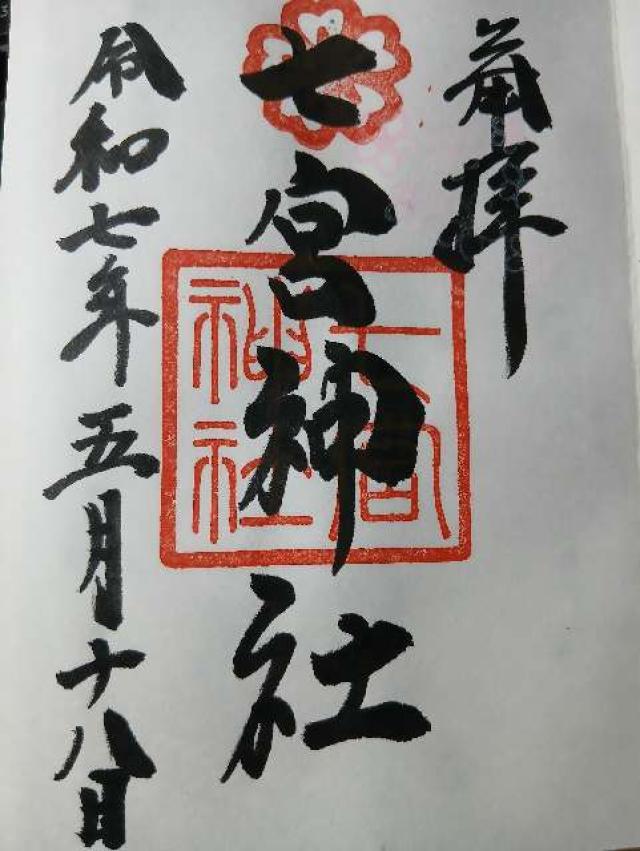 奉拝
七宮神社
七宮神社
令和七年五月十八日